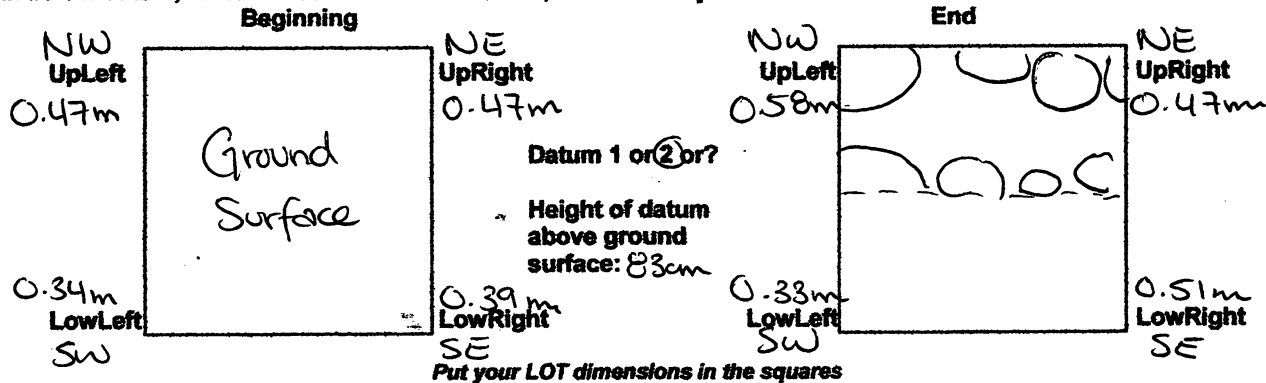 Beginning
NW
UpLeft
0.47m
NE
UpRight
0.47m
Ground
Surface
0.34m
LowLeft
SW
0.39m
LowRight
SE
Datum 1 or 2 or?
Height of datum
above ground
surface: 83cm
End
NW
UpLeft
0.58m
NE
UpRight
0.47m
0.33m
LowLeft
SW
0.51m
LowRight
SE
Put your LOT dimensions in the squares